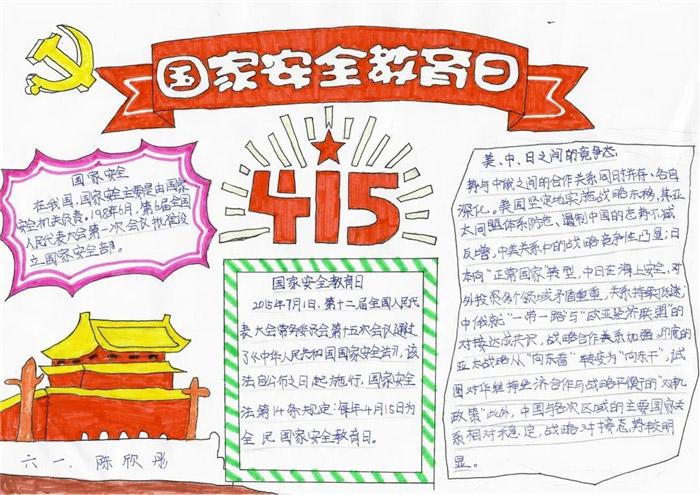 国家安全教育日
415
国家安全
在我国，国家安全主要是由国家
安全机关负责，1983年6月，第6届全国
人民代表大会第一次会议批准设
立国家安全部。
国家安全教育日
2015年7月1日，第十二届全国人民代
表大会常务委员会第十五次会议通过
了《中华人民共和国国家安全法》，该
法自公布之日起施行，国家安全
法第14条规定：每年4月15日为
全民国家安全教育日。
美、中、日之间的竞争态
势与中俄之间的合作关系同时并存、各自
深化。美国坚定地实施战略东移，其亚
太同盟体系防范、遏制中国的态势不减
反增，中美关系中的战略竞争性凸显；日
本向"正常国家"转型，中日在海上安全、对
外投资各个领域矛盾重重，关系持续低迷；
中俄就"一带一路"与"欧亚经济联盟"的
对接达成共识，战略合作关系加强。印度的
亚太战略从"向东看"转变为"向东干"，试
图对华维持经济合作与战略平衡的"对轨
政策"此外，中国与各次区域的主要国家关
系相对稳定，战略对接态势较明
显。
六一．陈欣彤